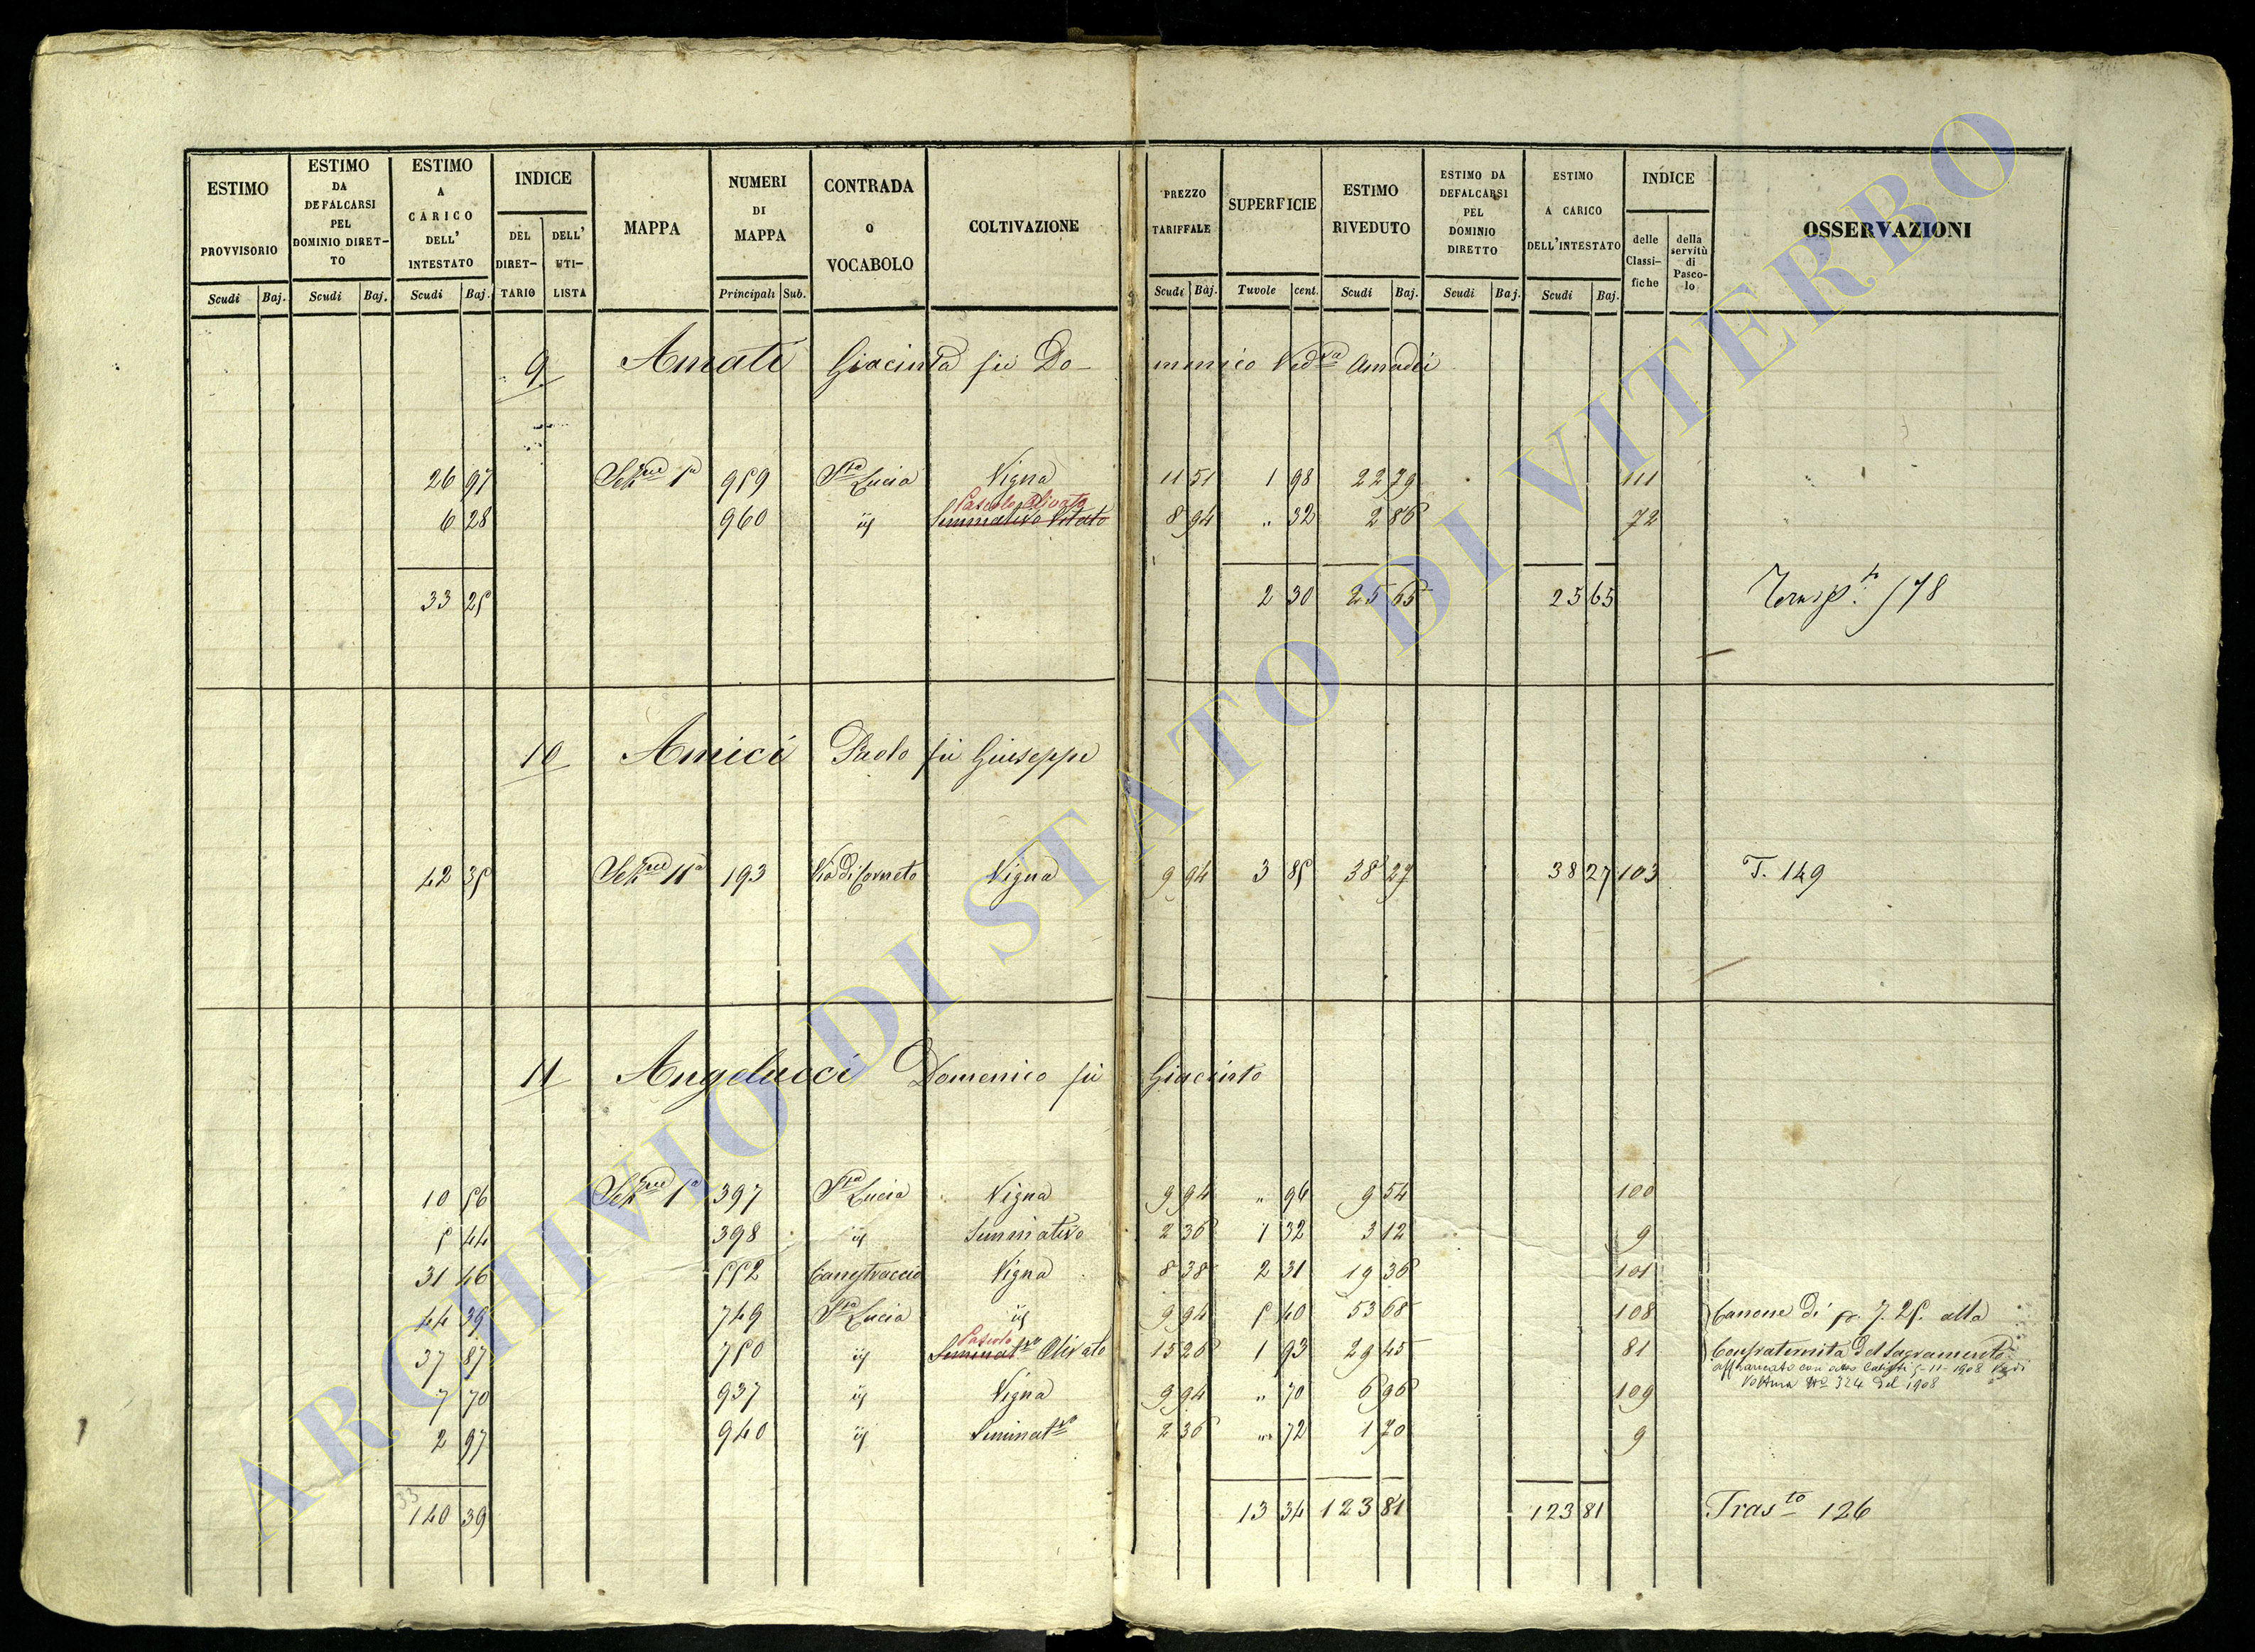 ESTIMO PROVVISORIO | ESTIMO DA DEFALCARSI PEL DOMINIO DIRET-TO | ESTIMO A CARICO DELL' INTESTATO | INDICE DEL DIRET-TARIO | DELL' UTI-LISTA | MAPPA | NUMERI DI MAPPA | CONTRADA O VOCABOLO | COLTIVAZIONE | PREZZO TARIFFALE | SUPERFICIE | ESTIMO RIVEDUTO | ESTIMO DA DEFALCARSI PEL DOMINIO DIRETTO | ESTIMO A CARICO DELL'INTESTATO | INDICE delle Classi-fiche | della servitù di Pasco-lo | OSSERVAZIONI
Scudi | Baj. | Scudi | Baj. | Scudi | Baj. | Principali | Sub. | Scudi | Baj. | Tavole | cent. | Scudi | Baj. | Scudi | Baj. | Scudi | Baj.
9 Amati Giacinta fù Domenico Ved.va Amadei
26 97 Sez.ne 1a 959 S.ta Lucia Vigna 11 51 1 98 22 79 111
Pascolo Olivato
6 28 960 iij Seminativo Vitato 8 94 " 32 2 86 72
33 25 2 30 25 65 25 65 Trasp.to 178
10 Amici Paolo fù Giuseppe
42 35 Sez.ne 11a 193 Via di Corneto Vigna 9 94 3 85 38 27 38 27 103 T. 149
11 Angelucci Domenico fù Giacinto
10 56 Sez.ne 1a 397 S.ta Lucia Vigna 9 94 " 96 9 54 100
5 44 398 iij Seminativo 2 36 1 32 3 12 9
31 46 552 Canestraccio Vigna 8 38 2 31 19 36 101
44 39 749 S.ta Lucia iij 9 94 5 40 53 68 108 Canone di 7. 25. alla
Pascolo
37 87 750 iij Seminat.vo Olivato 15 26 1 93 29 45 81 Confraternita del Sagramento
affrancato con atto 5-11-1908 Vedi
7 70 937 iij Vigna 9 94 " 70 6 96 109 Voltura N° 324 del 1908
2 97 940 iij Seminat.vo 2 36 " 72 1 70 9
33
140 39 13 34 123 81 123 81 Tras.to 126
ARCHIVIO DI STATO DI VITERBO